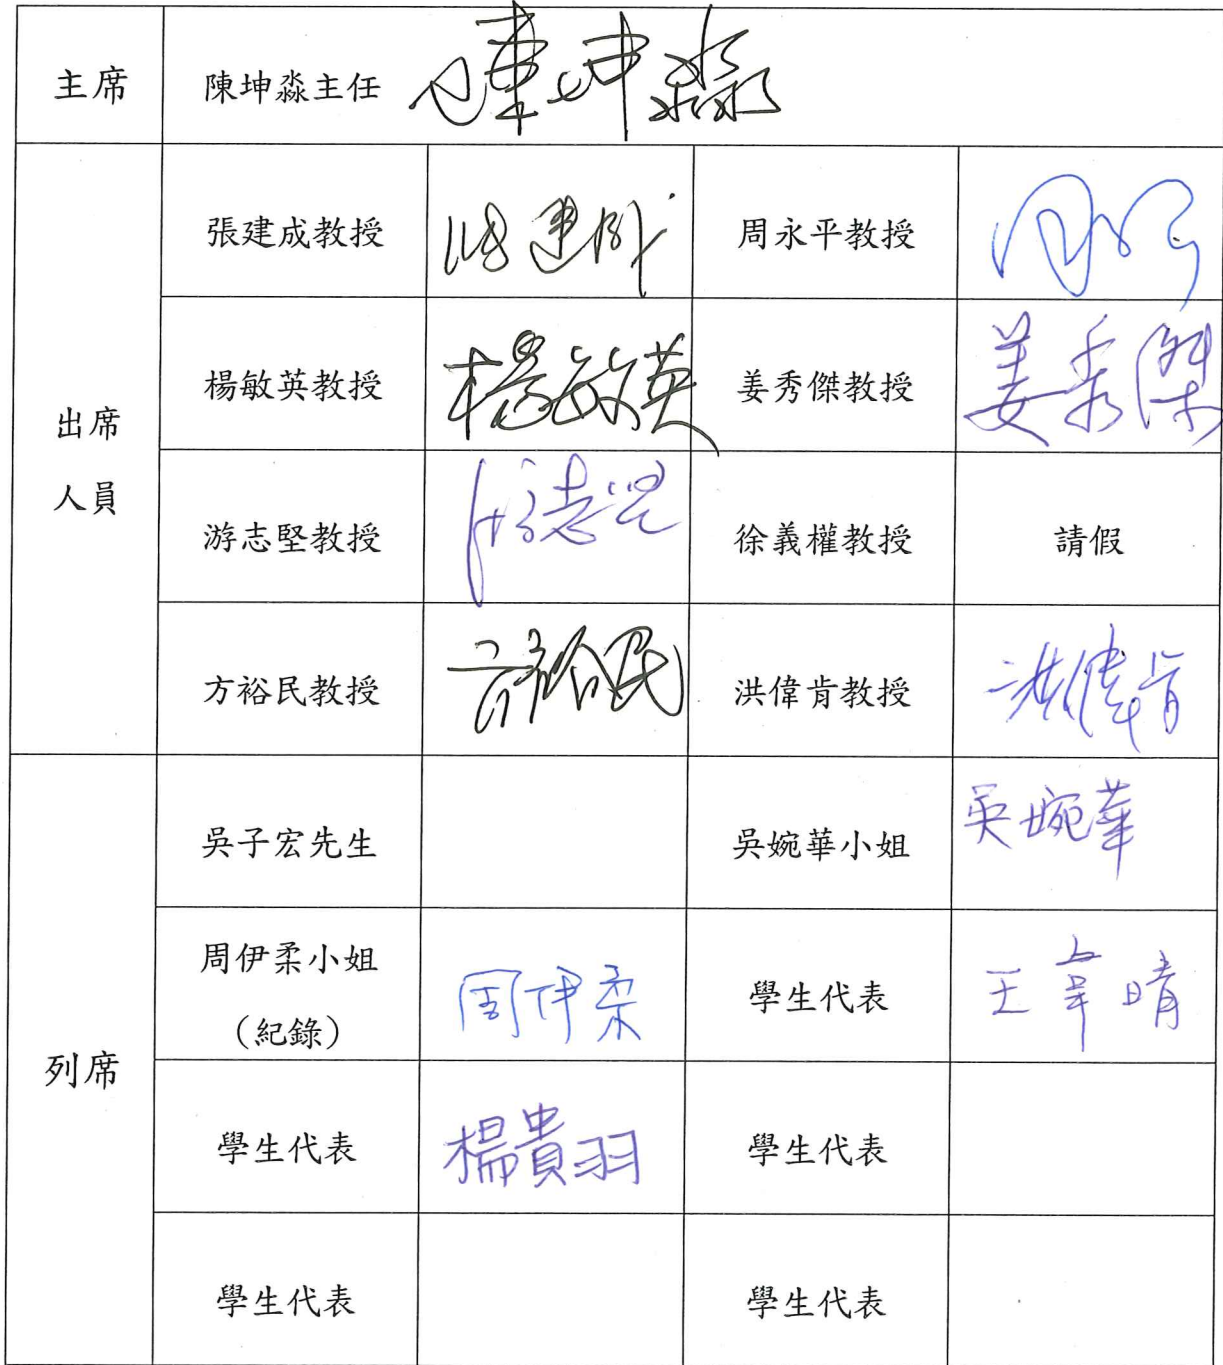 主席 陳坤淼主任 陳坤淼
張建成教授 張建成 周永平教授
楊敏英教授 楊敏英 姜秀傑教授 姜秀傑
出席
人員
游志堅教授 游志堅 徐義權教授 請假
方裕民教授 方裕民 洪偉肯教授 洪偉肯
吳子宏先生 吳婉華小姐 吳婉華
周伊柔小姐
（紀錄） 周伊柔 學生代表 王韋晴
列席
學生代表 楊貴羽 學生代表
學生代表 學生代表